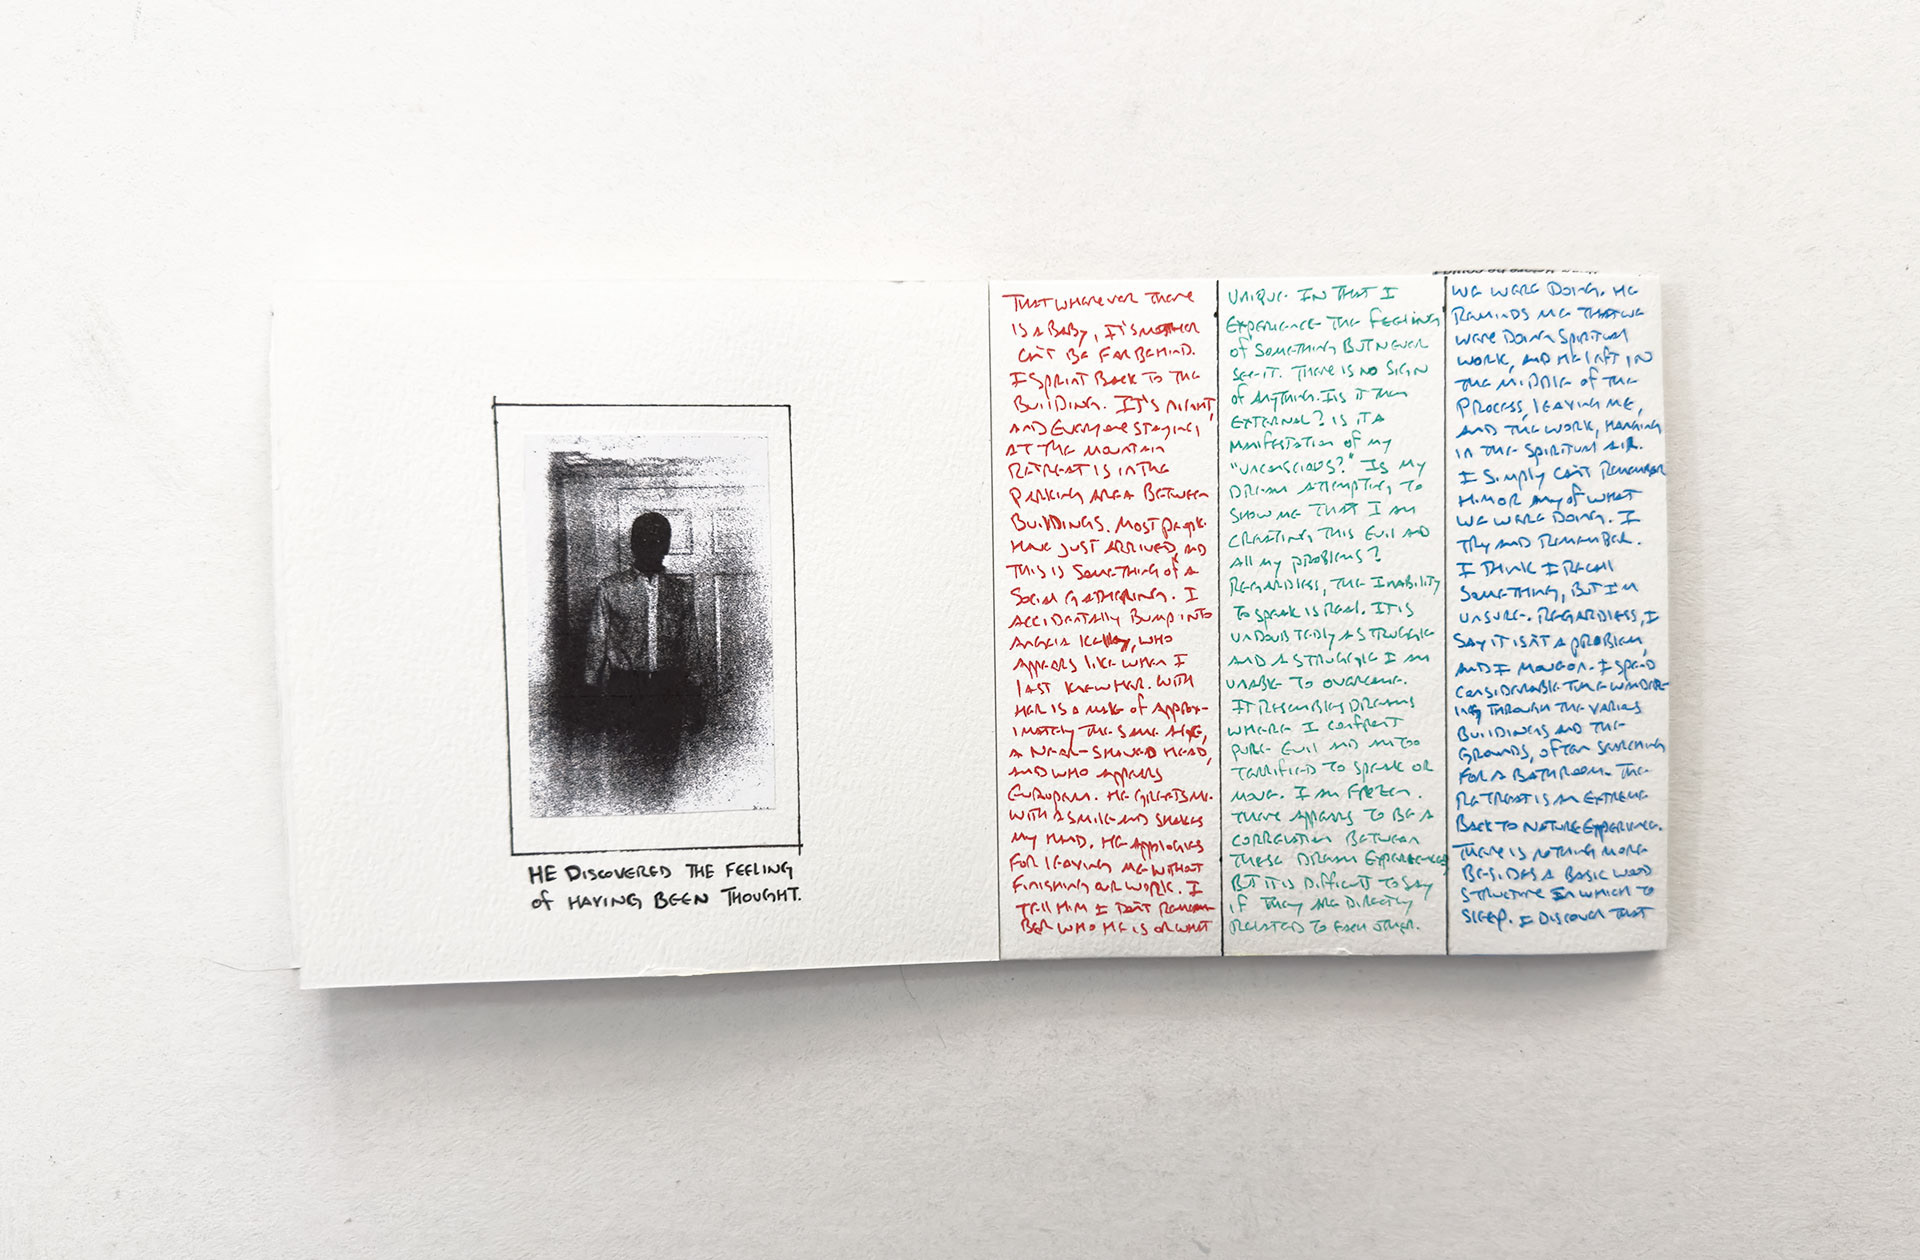 HE DISCOVERED THE FEELING
of HAVING BEEN THOUGHT.
THAT WHEREVER THERE
IS A BABY, IT'S MOTHER
CAN'T BE FAR BEHIND.
I SPRINT BACK TO THE
BUILDING. IT'S NIGHT,
AND EVERYONE STAYING
AT THE MOUNTAIN
RETREAT IS IN THE
PARKING AREA BETWEEN
BUILDINGS. MOST PEOPLE
HAVE JUST ARRIVED, AND
THIS IS SOMETHING OF A
SOCIAL GATHERING. I
ACCIDENTALLY BUMP INTO
ANGELA KELLEY, WHO
APPEARS LIKE WHEN I
LAST KNEW HER. WITH
HER IS A MALE OF APPROX-
IMATELY THE SAME AGE,
A NEAR-SHAVED HEAD,
AND WHO APPEARS
EUROPEAN. HE GREETS ME
WITH A SMILE AND SHAKES
MY HAND. HE APPOLOGIES
FOR LEAVING ME WITHOUT
FINISHING OUR WORK. I
TELL HIM I DON'T REMEM-
BER WHO HE IS OR WHAT
UNIQUE IN THAT I
EXPERIENCE THE FEELING
OF SOMETHING BUT NEVER
SEE IT. THERE IS NO SIGN
OF ANYTHING. IS IT THEN
EXTERNAL? IS IT A
MANIFESTATION OF MY
"UNCONSCIOUS?" IS MY
DREAM ATTEMPTING TO
SHOW ME THAT I AM
CREATING THIS EVIL AND
ALL MY PROBLEMS?
REGARDLESS, THE INABILITY
TO SPEAK IS REAL. IT IS
UNDOUBTEDLY A STRUGGLE
AND A STRUGGLE I AM
UNABLE TO OVERCOME.
IT RESEMBLES DREAMS
WHERE I CONFRONT
PURE EVIL AND AM TOO
TERRIFIED TO SPEAK OR
MOVE. I AM FROZEN.
THERE APPEARS TO BE A
CORRELATION BETWEEN
THESE DREAM EXPERIENCES,
BUT IT IS DIFFICULT TO SAY
IF THEY ARE DIRECTLY
RELATED TO EACH OTHER.
WE WERE DOING. HE
REMINDS ME THAT WE
WERE DOING SPIRITUAL
WORK, AND HE LEFT IN
THE MIDDLE OF THE
PROCESS, LEAVING ME,
AND THE WORK, HANGING
IN THE SPIRITUAL AIR.
I SIMPLY CAN'T REMEMBER
HIM OR ANY OF WHAT
WE WERE DOING. I
TRY AND REMEMBER.
I THINK I RECALL
SOMETHING, BUT I'M
UNSURE. REGARDLESS, I
SAY IT ISN'T A PROBLEM,
AND I MOVE ON. I SPEND
CONSIDERABLE TIME WANDER-
ING THROUGH THE VARIOUS
BUILDINGS AND THE
GROUNDS, OFTEN SEARCHING
FOR A BATHROOM. THE
RETREAT IS AN EXTREME
BACK TO NATURE EXPERIENCE.
THERE IS NOTHING MORE
BESIDES A BASIC WOOD
STRUCTURE IN WHICH TO
SLEEP. I DISCOVER THAT